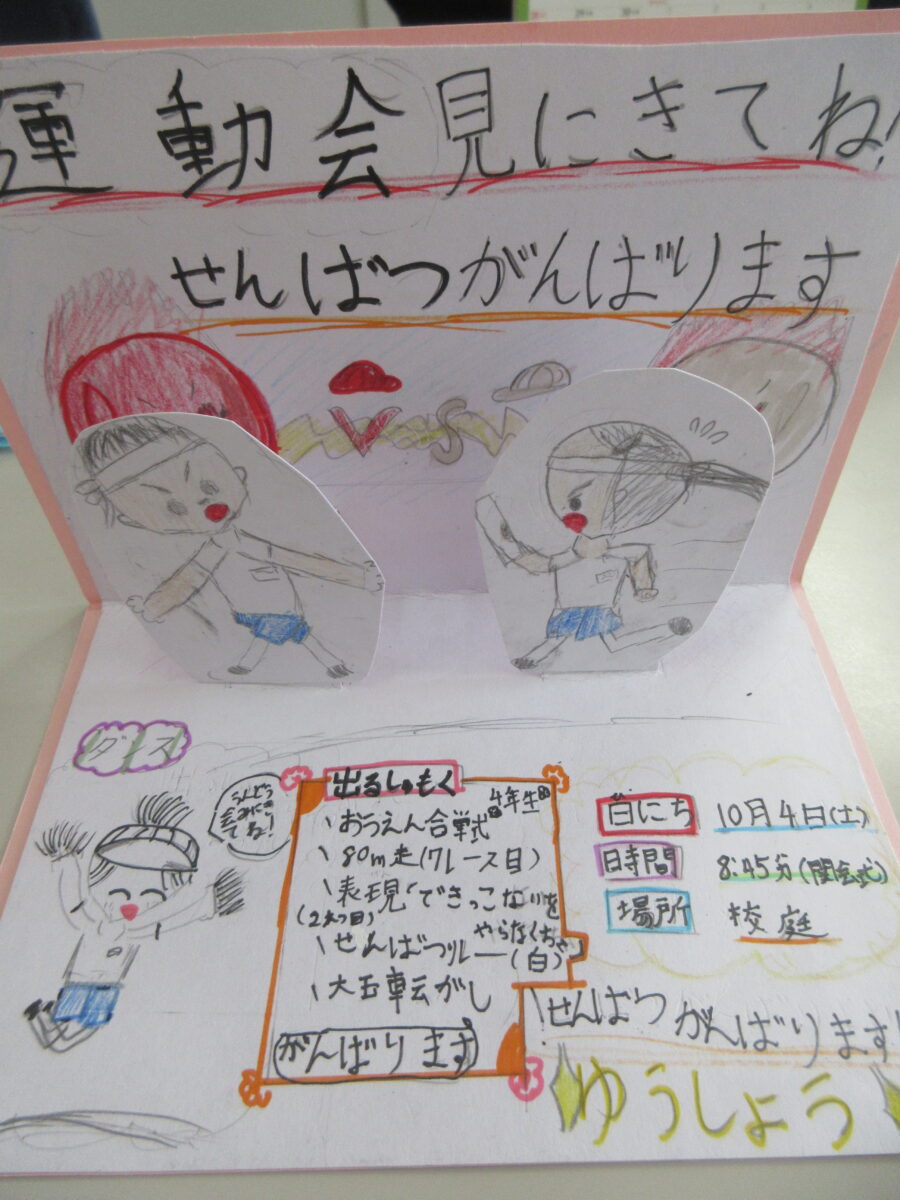 運動会見にきてね!
せんばつがんばります
VS
ダンス
うんどう
会みにき
てね!
出るしゅもく
4年生
おうえん合戦式
80m走(7レース目)
表現(できっこないを
やらなくちゃ)
(2つ目)
せんばつリレー(白)
大玉転がし
がんばります
日にち 10月4日(土)
時間 8:45分(開会式)
場所 校庭
せんばつ がんばります!
ゆうしょう